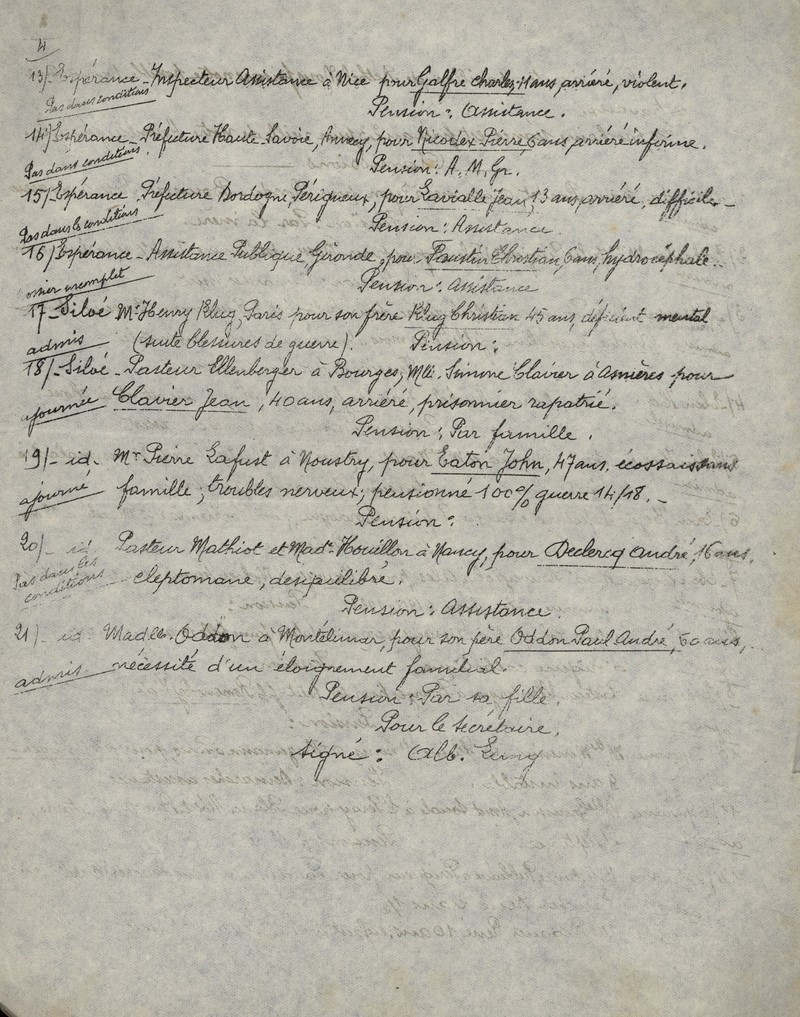 4
13/- Espérance - Inspecteur Assistance à Nice pour Galfré Charles, 11 ans, arriéré, violent.
Pas dans conditions
Pension : Assistance.
14/ Espérance - Préfecture Haute-Savoie, Annecy, pour Nicodex Pierre, 6 ans, arriéré infirme.
Pas dans conditions.
Pension : A. M. Gr.
15/ Espérance Préfecture Dordogne, Périgueux, pour Lavialle Jean, 13 ans, arriéré, difficile -
Pas dans les conditions
Pension : Assistance.
16/ Espérance - Assistance Publique, Gironde, pour Faustin Christian, 6 ans, hydrocéphale..
ossier incomplet
Pension : Assistance
17 - Siloé Mr Henry Klug, Paris pour son frère Klug Christian 45 ans, déficient mental
admis (suite blessures de guerre). Pension :
18/- Siloé - Pasteur Ellenberger à Bourges, Mlle. Simone Clavier à Asnières pour
ajournée Clavier Jean, 40 ans, arriéré, prisonnier rapatrié.
Pension : Par famille.
19/- id. Mr Pierre Lafust à Noustry, pour Eaton John, 47 ans. écossais sans
ajourné famille, troubles nerveux, pensionné 100% guerre 14/18. -
Pension :
20/- id Pasteur Mathiot et Made. Houillon à Nancy, pour Declercq André, 16 ans,
Pas dans les
conditions cleptomane, deséquilibré.
Pension : Assistance.
21/- id. Madlle. Oddon à Montélimar, pour son père Oddon Paul André, 60 ans,
admis nécessité d'un éloignement familial.
Pension : Par sa fille.
Pour le secrétaire,
signé : Alb.